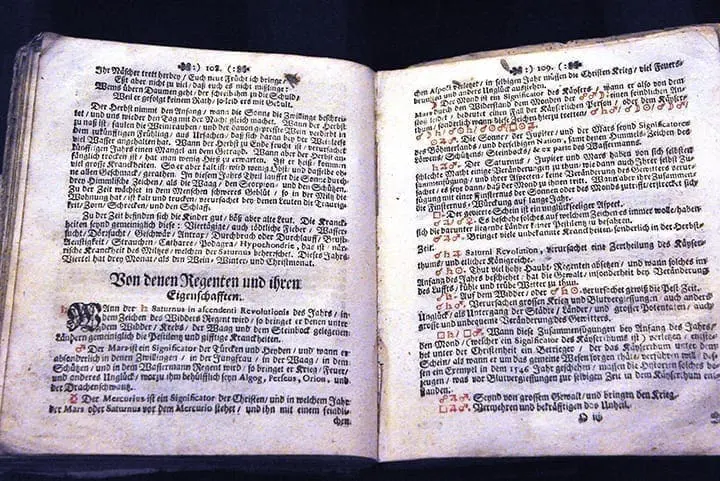 :) 108. (:
Ihr Näscher trett herbey / Euch neue Frücht ich bringe /
Eßt aber nicht zu viel / daß euch es nicht mißlinge:
Wems übern Daumen geht / der schreib ihm zu die Schuld /
Weil er gefolgt keinem Rath / so leid ers mit Gedult.
Der Herbst nimmt den Anfang / wann die Sonne die Zwillinge beschrei-
tet / und uns wieder den Tag mit der Nacht gleich machet. Wann der Herbst
zu naß ist / faulen die Weintrauben / und davon
dem zukünfftigen Frühling / aus Ursachen / daß sich daran bey
viel Wasser angehalten hat. Wann der Herbst zu Ende feucht ist / verursachet
künfftigen Jahrs einen Mangel an dem Getraid. Wann aber der Herbst an-
fänglich trocken ist / hat man wenig Hitz zu erwarten. Ist er heiß / kommen
viel grosse Kranckheiten. So er aber kalt ist / wird wenig Obst / und dasselbe oh-
ne allen Geschmack / gerathen. In diesem Jahrs Theil lauffet die Sonne durch
drey Himmlische Zeichen / als die Waag / den Scorpion / und den Schützen.
Zu der Zeit wächst in dem Menschen schweres Geblüt / so in der Miltz die
Wohnung hat / ist kalt und trucken / verursachet bey denen Leuten die Traurig-
keit / Zorn / Schrecken / und den Schlaff.
Zu der Zeit befinden sich die Kinder gut / böß aber alte Leut. Die Kranck-
heiten seynd gemeiniglich diese: Viertägige / auch tödtliche Fieber / Wasser-
sucht / Dörrsucht / Geschwär / Antrax / Durchbruch oder Durchlauff / Brust-
Beaißtigkeit / Catharre / Podagra / Hypochondrie, das ist / närri-
sche Kranckheit des Miltzes / welchen der Saturnus beherrschet. Dieses Jahrs
Viertel hat drey Monat / als den Wein- Winter- und Christmonat.
Von denen Regenten und ihren
Eigenschafften.
♄ WAnn der ♄ Saturnus in ascendenti Revolutionis des Jahrs / in
dem Zeichen des Widders Regent wird / so bringet er denen unter
dem Widder / Krebs / der Waag und dem Steinbock gelegenen
Ländern gemeiniglich die Pestilentz und gifftige Kranckheiten.
♂ Der Mars ist ein Significator der Türcken und Heyden / und wann er
absonderlich in denen Zwillingen / in der Jungfrau / in der Waag / in dem
Schützen / und in dem Wassermann Regent wird / so bringet er Krieg / Feuer /
und anderes Unglück / worzu ihm behülfflich seyn Algog, Perseus, Orion, und
der Drachenschwantz.
☿ Der Mercurius ist ein Significator der Christen / und in welchem Jahr
der Mars oder Saturnus vor dem Mercurio stehet / und ihn mit einem feindli-
chen
:) 109. (:
chen Aspect verletzet / in selbigen Jahr müssen die Christen Krieg / viel Feuers-
brunsten und anders Unglück ausstehen.
☽ Der Mond ist ein Significator des Käysers / wann er also von dem
Mars und dem Widerstand dem Monden den ☍ ♂: einen feindlichen An-
stoß leidet / bedeutet einen Fall der Käyserlichen Person / oder dem Käyser-
thum / sonderlich wann diese Zeichen hierzu treffen
☉ Die Sonne / der Jupiter / und der Mars seynd Significatores
des Böhmerlands / und desselbigen Nation / samt denen Himmels-Zeichen des
Löwens / Schützens / Steinbocks / &c. und des Wassermanns.
♄ ♃ ♂. Der Saturnus / Jupiter und Mars haben von sich selbsten
schlechte Macht einige Veränderungen zu thun / wie dann auch Ihrer selbst Zu-
sammenfügungen / und ihrer Aspecten / keine Veränderung des Gewitters verur-
sachet / es seye dann / daß der Mond zu ihnen tritt. Wann aber ihre Zusammen-
fügung mit einer Finsternus der Sonnen oder des Monds zutrifft / erstrecket sich
ihr Finsternus- Würckung auf lange Jahr.
□. Der gevierte Schein ist ein unglückseeliger Aspect.
♂ ♃ ♂. Es beschehe solches auf welchem Zeichen es immer wolle / haben
sich die darunter liegende Länder keiner Pestilentz zu befahren.
♂ ♃ ♂. Bringet viele unbekannte Kranckheiten / sonderlich in der Herbst-
Zeit.
♂ ♃ ♄ Saturni Revolution, verursachet eine Zertheilung des Käyser-
thums / und etlicher Königreiche.
♂ ♄ ☉. Thut viel hohe Haubt-Regenten absetzen / und wann solches im
Anfang des Jahrs beschihet / hat die Gewalt / insonderheit bey Veränderung
des Luffts / kühle und trübe Wetter zu thun.
♂ ♄. Auf dem Widder / oder ♂ ☉. verursachet groß die Pest. Zeit.
♂ ♂. Verursachen grossen Krieg und Blutvergiessungen / auch anders
Unglück / als Untergang der Städte / Länder / grosser Potentaten / auch
große und unbequeme Veränderung des Gewitters.
□ ♄ / □ ♂. Wann diese Zusammenfügungen bey Anfang des Jahrs /
den Mond / (welcher ein Significator des Käyserthums ist) verletzen / entste-
het unter der Christenheit ein Vertrieger / der das Käyserthum unter dem
Schein / als wann er um das gemeine Wesen sorgen thäte / verführen will / des-
sen ein Exempel in dem 1546 Jahr geschehen / massen die Historien solches be-
zeugen / was vor Blutvergiessungen zur selbigen Zeit in dem Käyserthum ent-
standen.
♂ ♃ ♂. Seynd von grossem Gewalt / und bringen den Krieg.
□ ♃ ♂. Vermehren und bekräfftigen das Unheil.